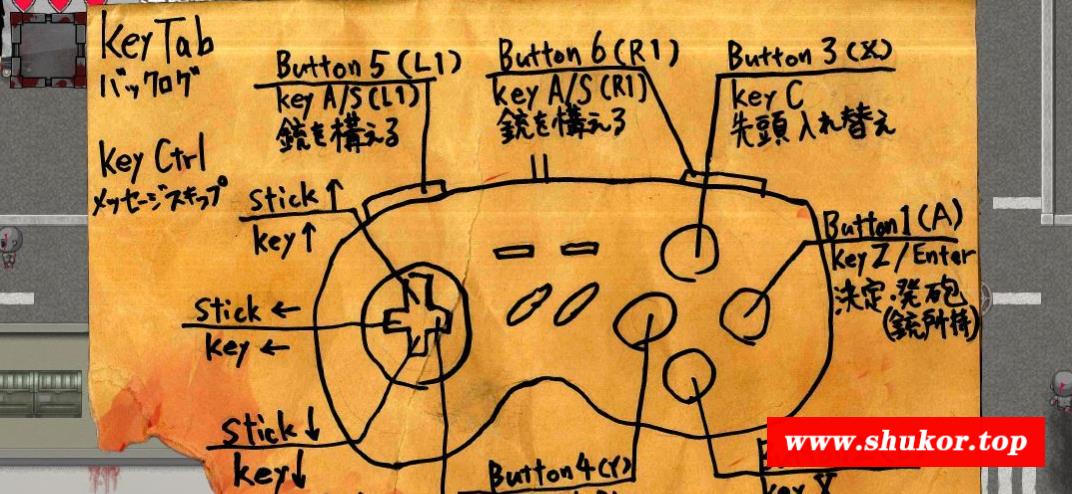 Key Tab
バックログ
Key Ctrl
メッセージスキップ
Button 5 (L1)
key A/S (L1)
銃を構える
Button 6 (R1)
key A/S (R1)
銃を構える
Button 3 (X)
key C
先頭入れ替え
Stick ↑
key ↑
Button 1 (A)
key Z / Enter
決定・発砲
(銃所持)
Stick ←
key ←
Stick ↓
key ↓
Button 4 (Y)
key X
www.shukor.top